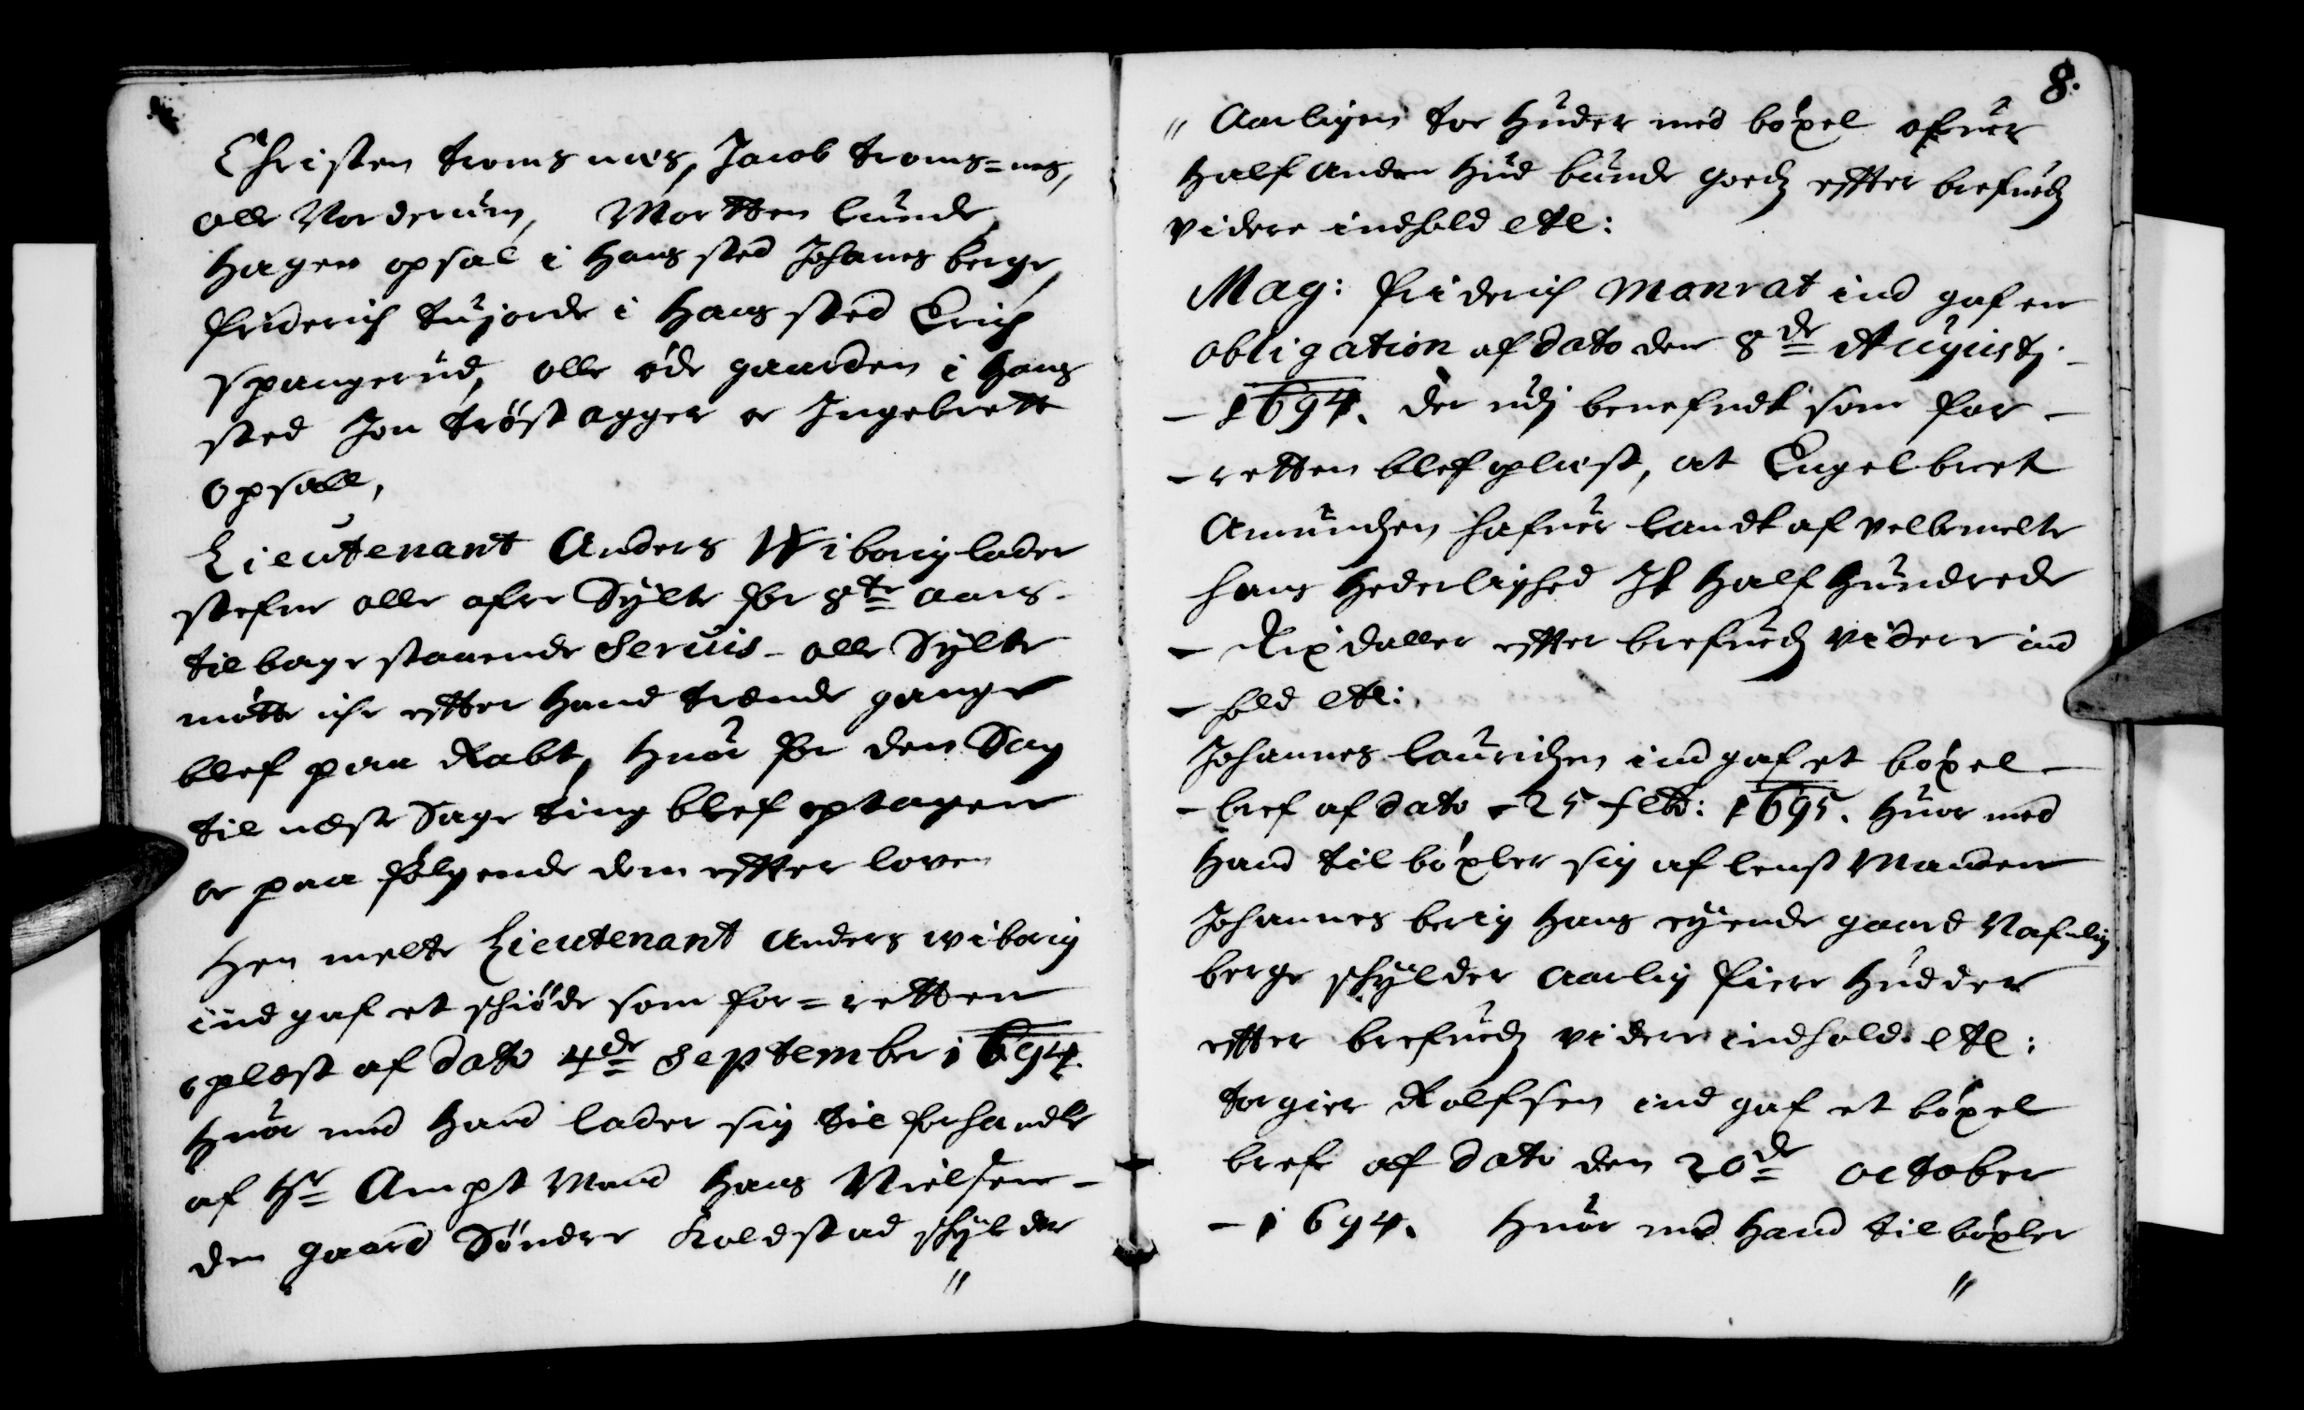 Christen tromsnæs, Jacob troms=nes,
olle Norderům, Mortten lůnde,
Hagen opsal i Hans sted Johanes berge,
friderich tůjorde i Hans sted Erich
spangerůd, olle øde gaarden i Hans
sted Jon trøstagger oc Ingebrett
opsall,
Lieutenant Anders Wiborig lader
stefne olle ofre Sylte for 8te aars-
tilbage staaende Servis- olle Sylte
møtte iche efter Hand trende gange
blef paa Rabt, Hůor for den Sag
til neste Sage ting blef optagen
oc paa følgende dom effter loven
Hen melte Lieutenant Anders wiborig
ind gaf et schiøde som for=retten
oplæst af dato 4de September 1694.
Hůor med Hand lader sig til forhandle
af Hr Ampt Mand Hans Nielsen-
den gaard Søndre Koldstad schylder
"
8.
" Aarligen toe Hůder med bøxel ofůer
Half anden Hůd bůnde goedz effter brefůedz
videre indhold etc:
Mag: friderich Monrat ind gaf en
obligation af dato den 8de Augustj.
- 1694. der udj benefndt som for-
- retten blef oplæst, at Engelbret
Amundsen hafůer laandt af velbemelte
hans Hederlighed It Half Hůndrede
- Rixdaller effter brefůedz videre ind
- hold etc:
Johannes Lauridsen ind gaf et bøxel-
- bref af dato - 25 febr: 1695. Hůor med
Hand til bøxler sig af lenst Manden
Johannes berig Hans eyende gaard Nafnlig
berge schylder Aarlig fiere Hůdder
effter brefůedz videre indhold. etc:
torgier Rolfsen ind gaf et bøxel
bref af dato den 20de october
- 1694. Hůor med Hand til bøxler
"